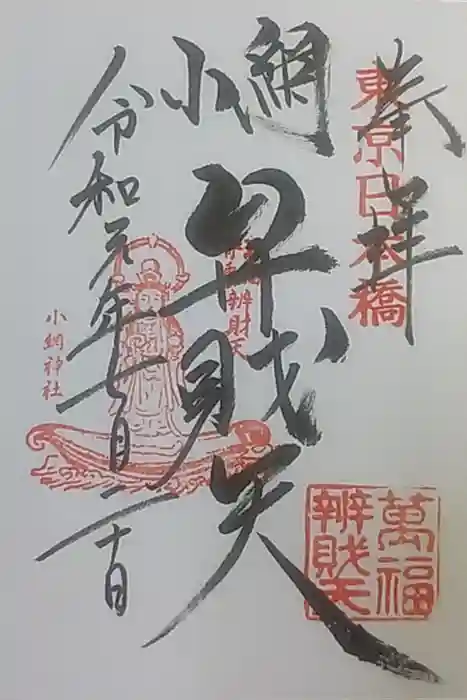 奉拝
東京日本橋
小網
弁財天
辨財天
小網神社
令和元年七月二十日
萬福
辨財天